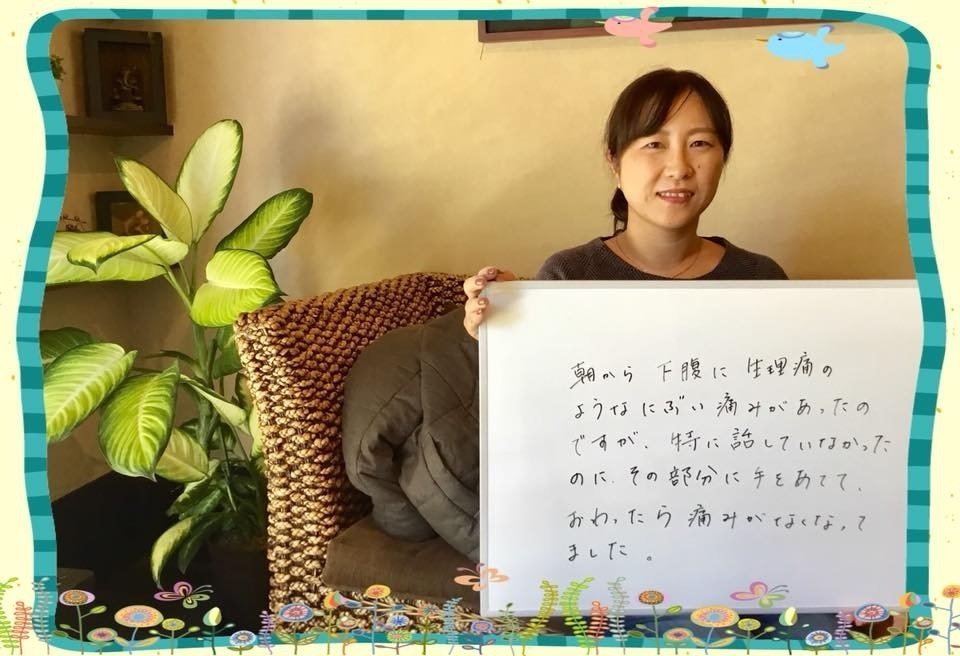 朝から 下腹に 生理痛の
ようなにぶい 痛みがあったの
ですが、特に話していなかった
のに、その部分に手をあてて、
おわったら 痛みがなくなって
ました。